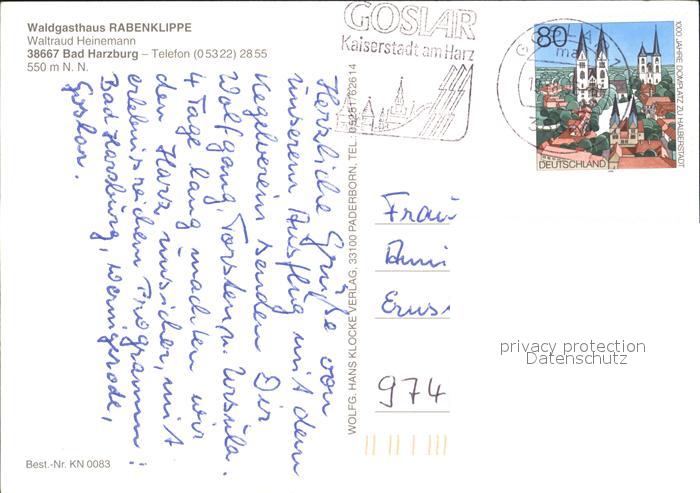 Waldgasthaus RABENKLIPPE
Waltraud Heinemann
38667 Bad Harzburg – Telefon (0 53 22) 28 55
550 m N. N.
GOSLAR
Kaiserstadt am Harz
80
DEUTSCHLAND
1000 JAHRE DOMPLATZ ZU HALBERSTADT
Herzliche Grüße von
unserem Ausflug mit dem
Kegelverein senden Dir
Wolfgang, Torsten, u. Ursula.
4 Tage lang machten wir
den Harz unsicher, mit
erlebnisreichem Programm:
Bad Harzburg, Wernigerode,
Goslar.
WOLFG. HANS KLOCKE VERLAG, 33100 PADERBORN, TEL. 05251/62614
Frau
974
privacy protection
Datenschutz
Best.-Nr. KN 0083